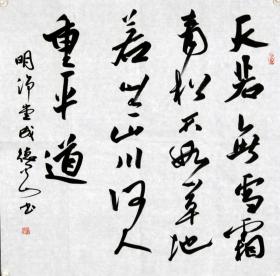 天若無雪霜
青松不如草地
若無山川何人
重平道
明沛堂成德以書